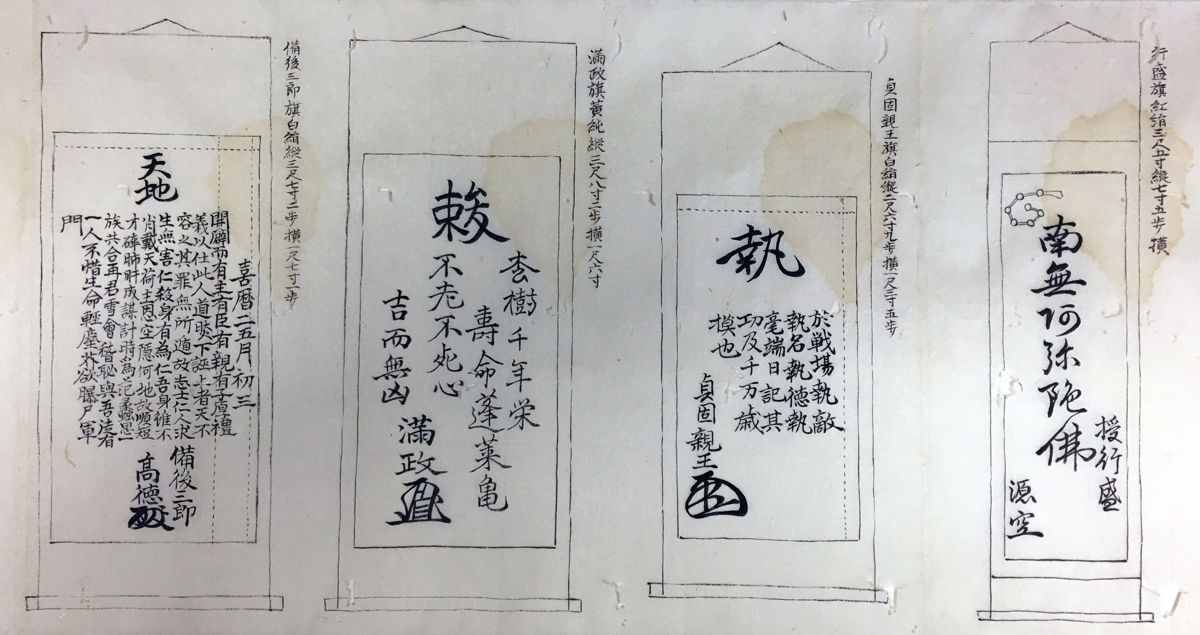 行盛旗紅絹三尺五寸縦七寸五步横
南無阿弥陀佛
授行盛
源空
貞固親王旗白絹縦二尺六寸九步横一尺三寸五步
執
於戦場執敵
執名執徳執
毫端日記其
功及千万歳
摸也
貞固親王
滿政旗黄純縱三尺八寸二步横一尺六寸
樹千年栄
壽命蓬莱亀
不老不死心
吉而無凶
滿政
備後三郎旗白絹縱三尺七寸二步横一尺七寸一步
天地
喜暦二五月初三
開闢而有主有臣有親有子厚禮
義以仕此人道下誣上者天不
容之其罪無所遁故志士仁人求
生無害仁殺身有為仁吾身雖不
肖戴天荷主恩空隠何地故順短
才碎肺肝成謀計時為范蠡思一
族共合再君雪會稽恥與吾徒者
一人不惜生命軽塵芥欲曝尸軍
門
備後三郎
高徳